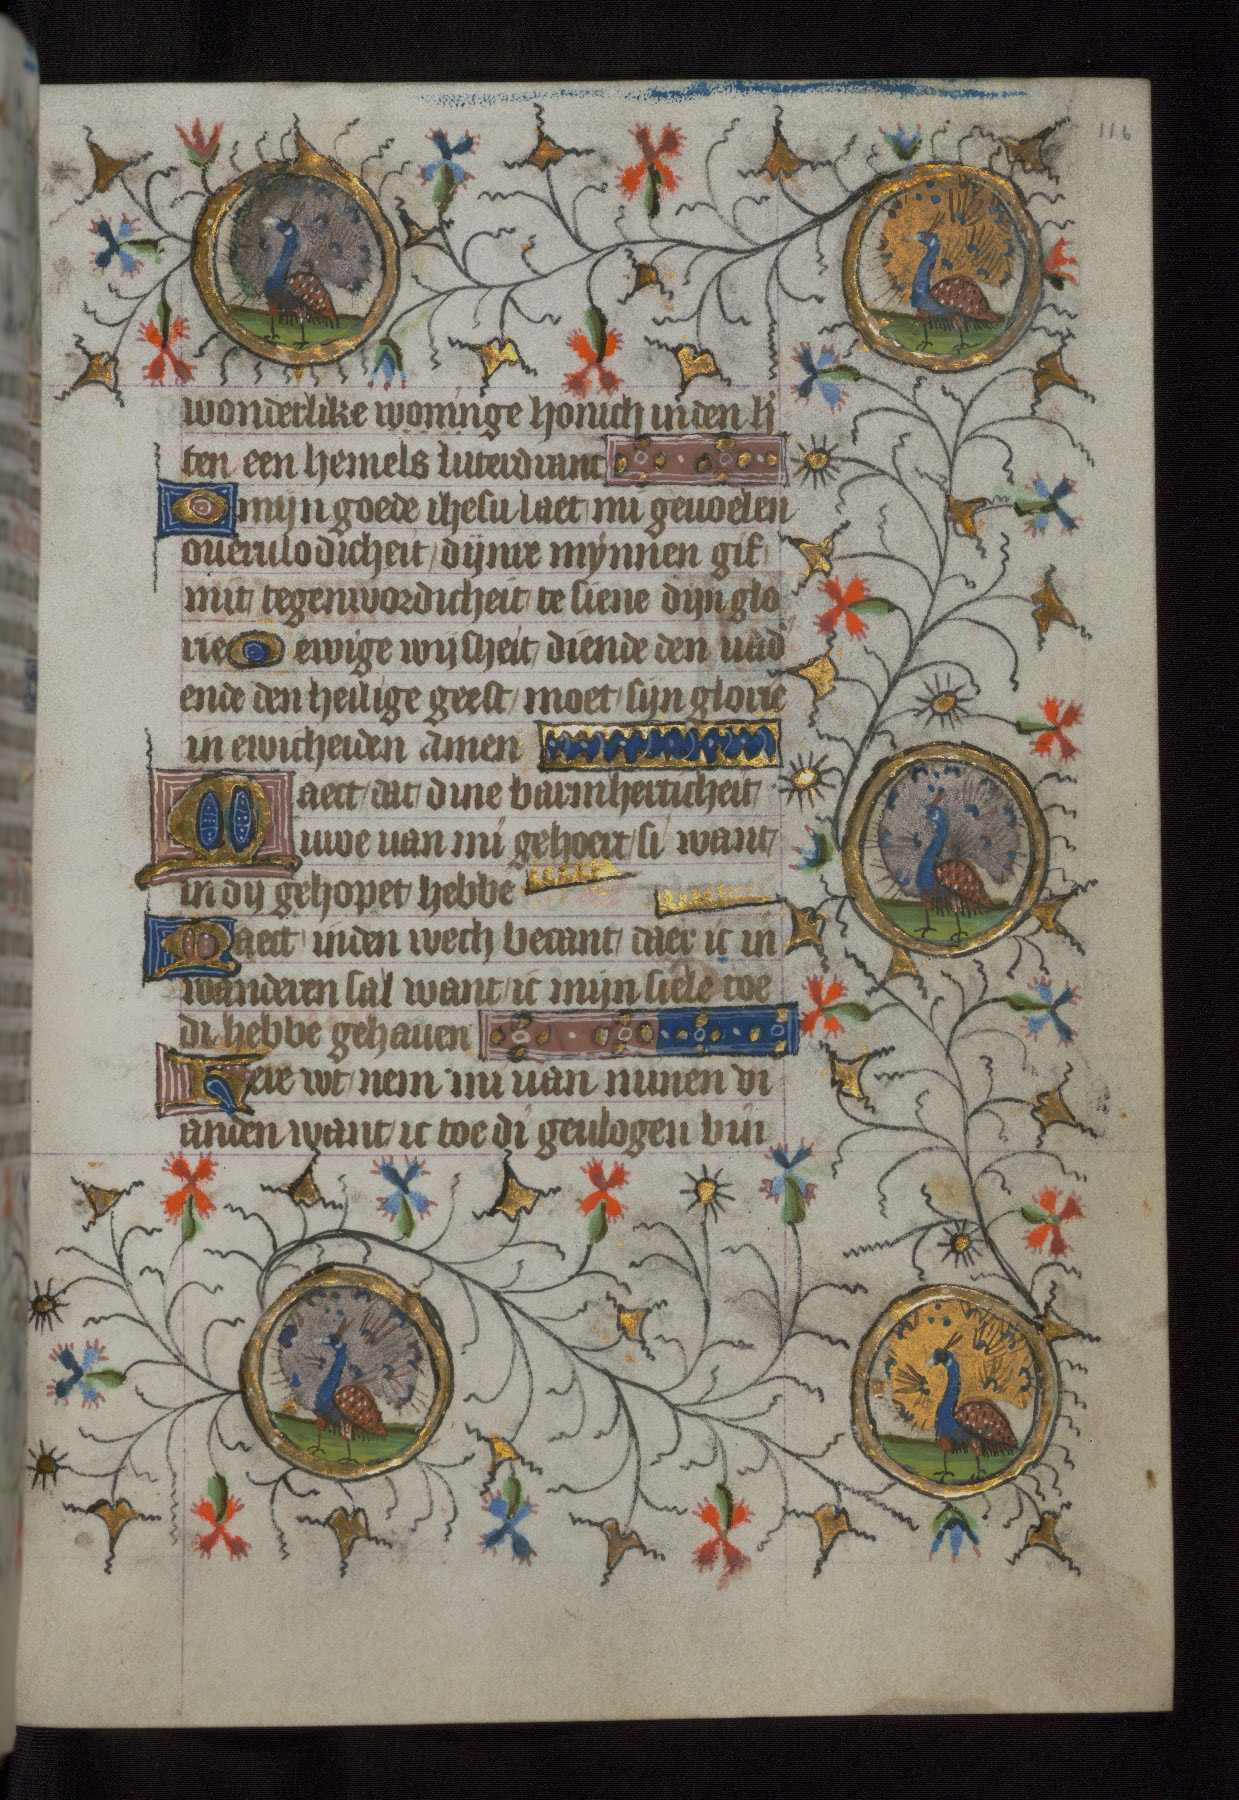 116
wonderlike woninge honich inden h
ten een hemels luterdranc
O mijn goede ihesu laet mi geuoelen
ouerulodicheit dijnre mynnen gif
mit tegenwordicheit te siene dijn glo
rie O ewige wijsheit diende den uad'
ende den heilige geest moet sijn glorie
in ewicheiden Amen
Maect dat dine barmherticheit
uwe uan mi gehoert si want
in dij gehopet hebbe
Maect inden wech becant daer ic in
wanderen sal want ic mijn siele toe
di hebbe gehauen
Here wt nem mi uan minen vi
anden want ic toe di geulogen bin